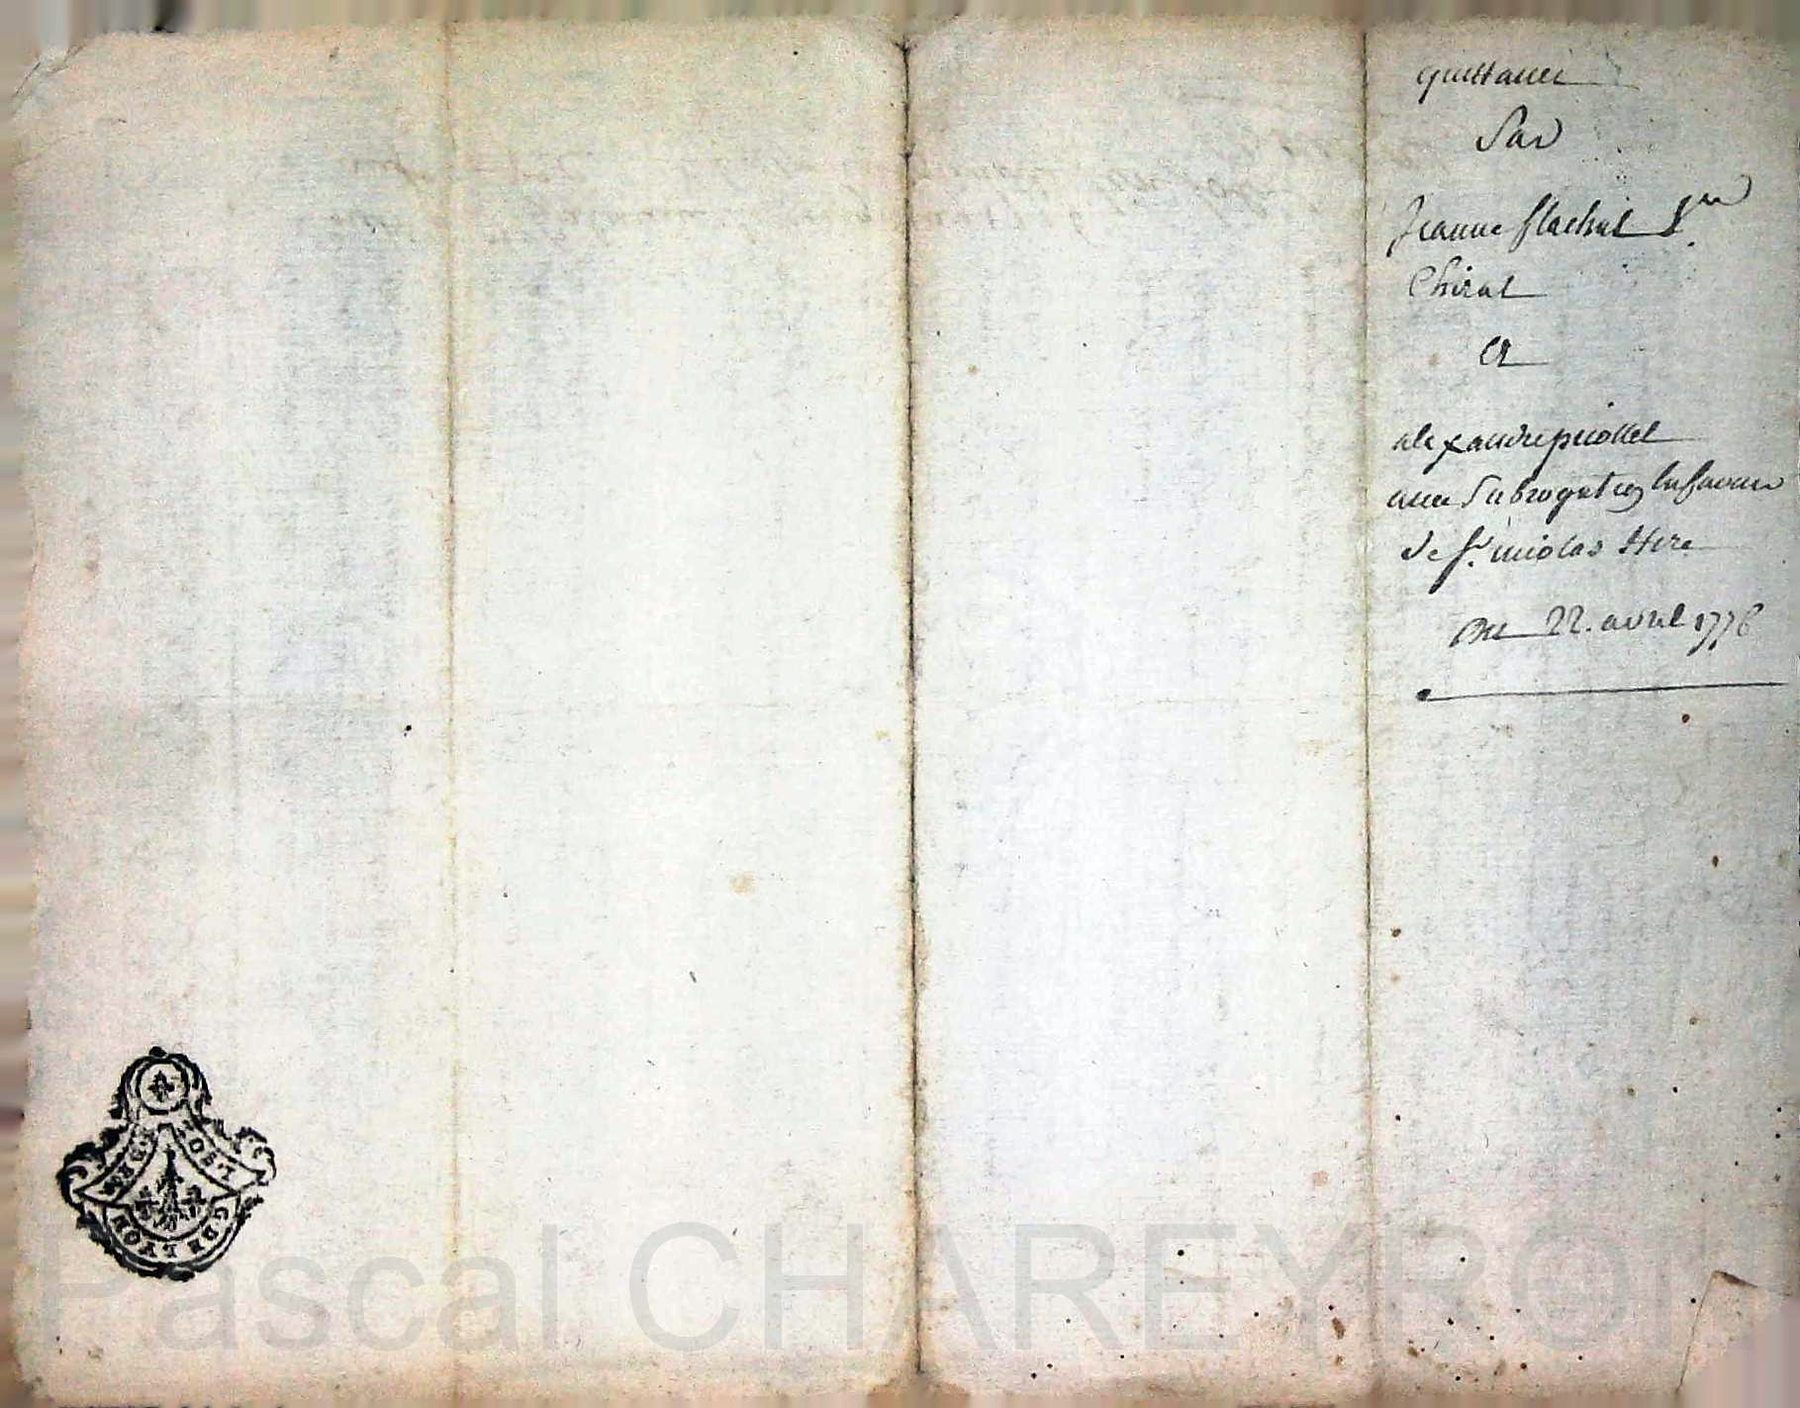 quittance
Par
Jeanne flachat
Chirat
Et
alexandre piollet
avec Subrogation en la faveur
de Sr. nicolas Hire
Du 22. avril 1776
DEUX SOLS
G. DE LYON
Pascal CHAREYRON